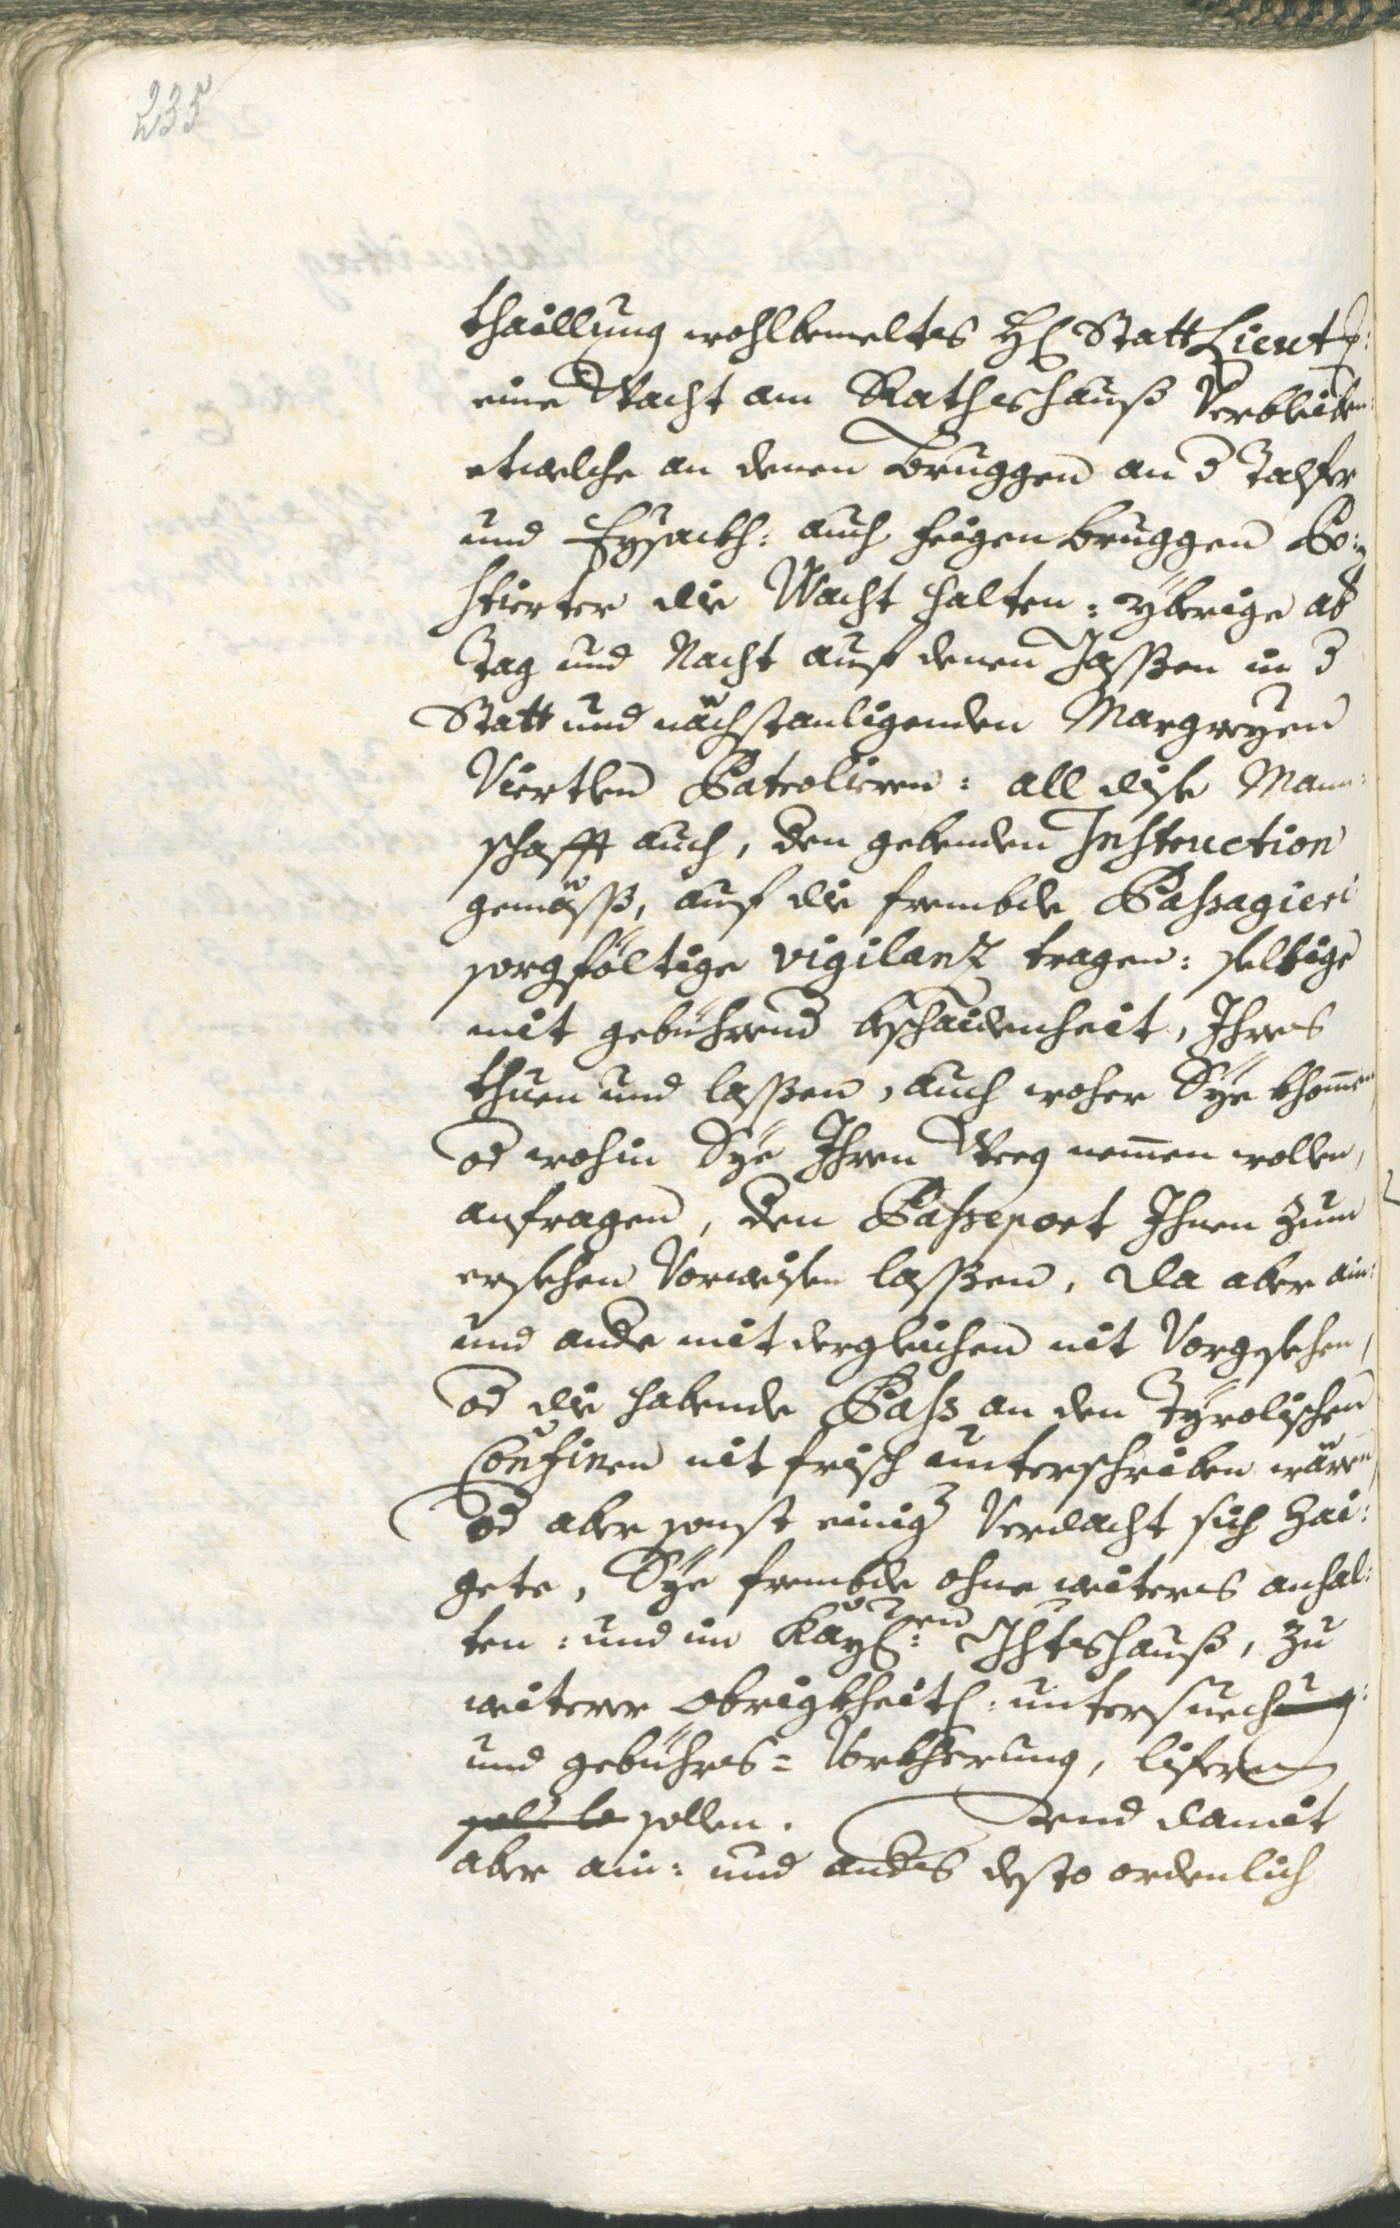 235
thaillung wohlbemeltes H Statt Lieut:
eine Wacht am Rathshauß Verbleiben:
etwelche an denen bruggen an d Talfer
und Eysackh: auch seigen bruggen Po:
stierter die Wacht halten: ÿberige ab
Tag und Nacht auf denen Gassen in d
Statt und nächstanligenden Margreyen
Viertlen Patroliren: all dise Mann:
schafft auch, den gebenden Instruction
gemäß, auf die frembde Passagieri
sorgföltige vigilanz tragen: selbige
mit gebührend bschaidenheit, Ihres
thuen und lassen, auch woher Sÿe khom̅en
od wohin Sÿe Ihren Weeg nem̅en wollen,
anfragen, den Passeport Ihnen zum
ersehen Vorweisen lassen, da aber ain:
und ande mit dergleichen nit Vorgesehen,
od die habende Pass an den Tÿrolischen
Confinen nit frisch unterschriben wären
od aber sonst einig Verdacht sich zai:
gete, Sÿe frembde ohne weiters anhal:
ten: und im Kayl:en Ambtshauß, zu
weiterer obrigkheitl: untersuechung:
und gebührs= Vorkherung, lifern
sollen. Und damit
aber ain: und anders desto ordenlich